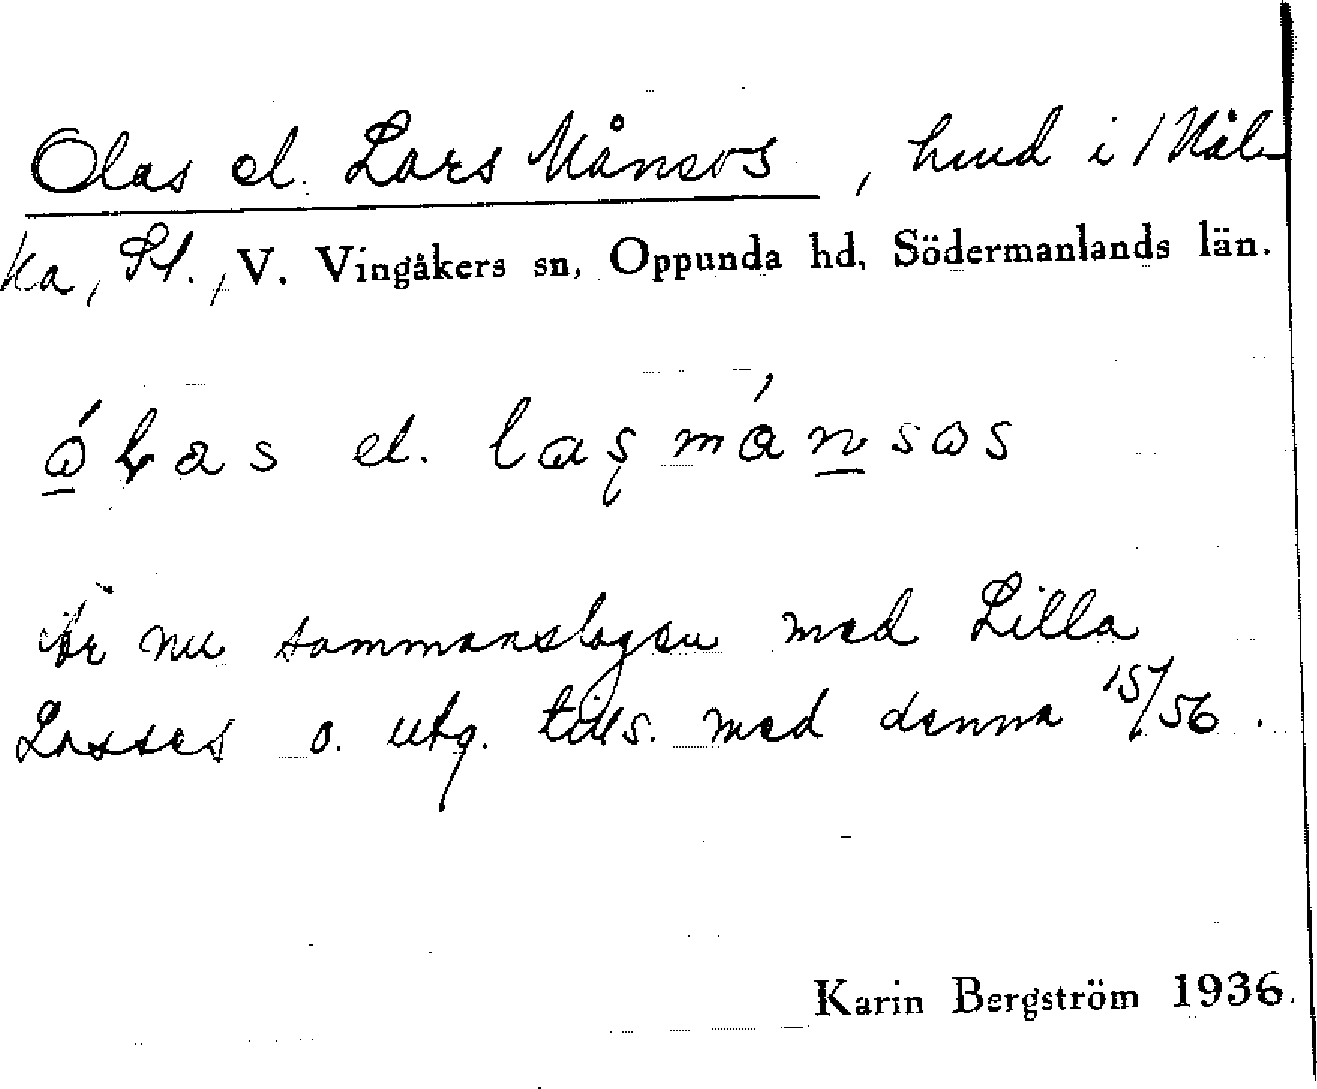 Olas el. Lars Månsos, hmd i 1 Nål-
ka, St., V. Vingåkers sn, Oppunda hd, Södermanlands län.
el.
Är nu sammanslagen med Lilla
Lasses o. utg. tills. med denna 15/56.
Karin Bergström 1936.